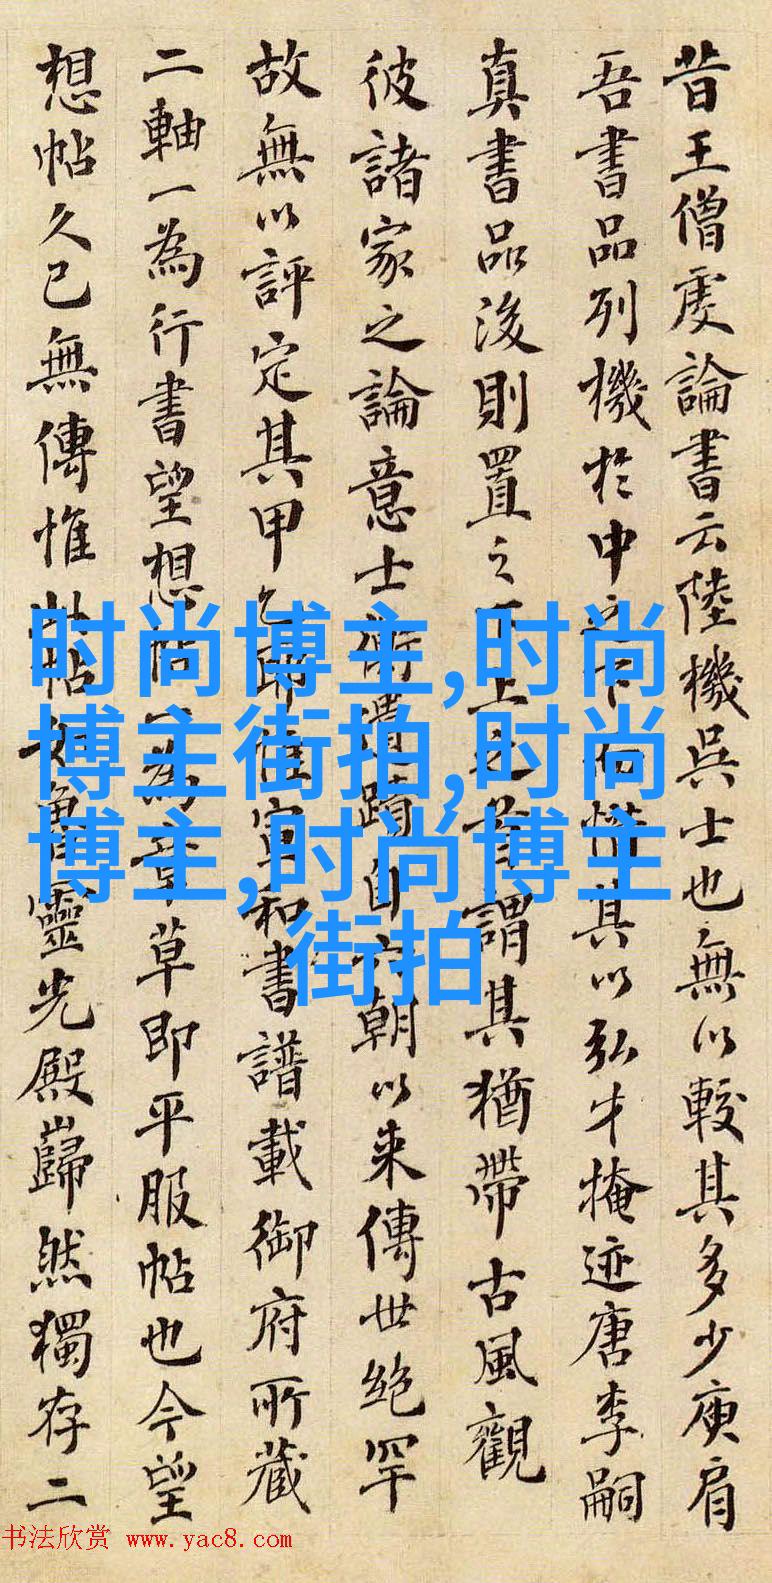 昔王僧虔論書云陸機吳士也無以較其多少庾肩
吾書品列機於中之下而惜其以弘才掩迹唐李嗣
真書品後則置之下上之首謂其猶帶古風觀
彼諸家之論意士衡遺蹟自六朝以来傳世絶罕
故無以評定其甲乙耶惟宣和書譜載御府所藏
二軸一為行書望想帖一為章草即平服帖也今望
想帖久已無傳惟此帖如魯靈光殿巋然獨存二
时尚博主,时尚
博主街拍,时尚
博主,时尚博主
街拍
书法欣赏 www.yac8.com